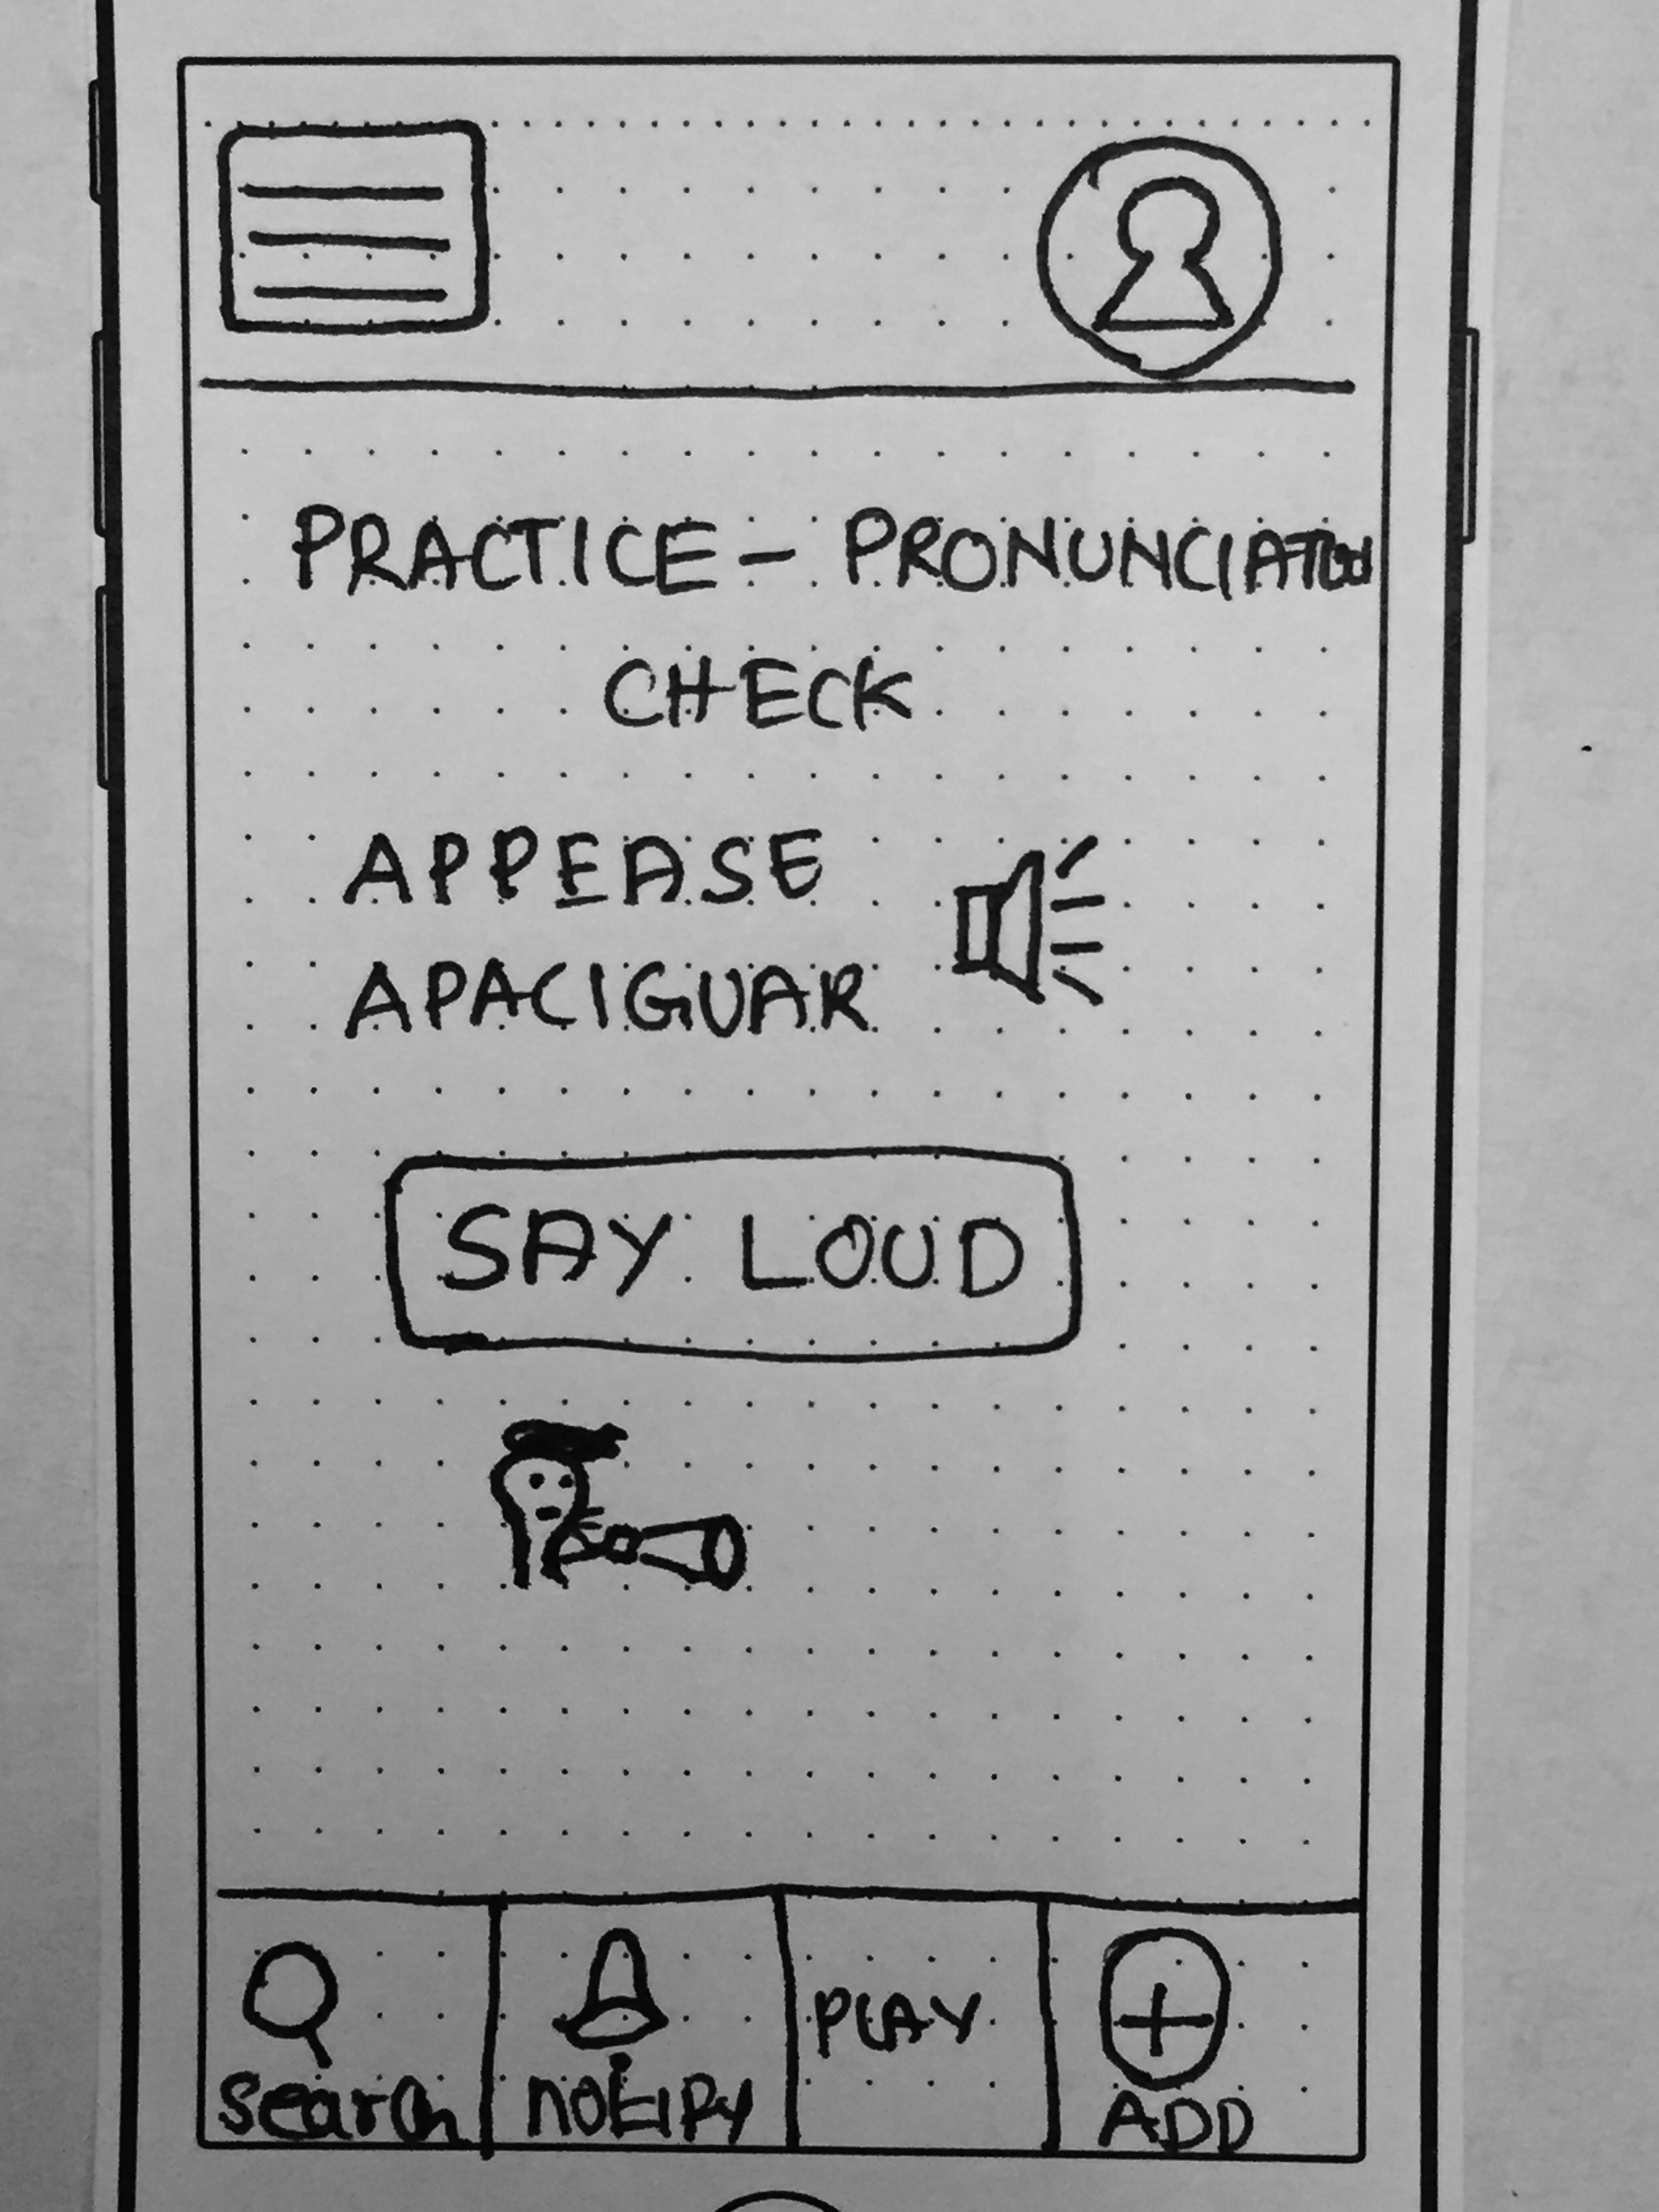 PRACTICE - PRONUNCIATION
CHECK
APPEASE
APACIGUAR
SAY LOUD
PLAY
search
notify
ADD